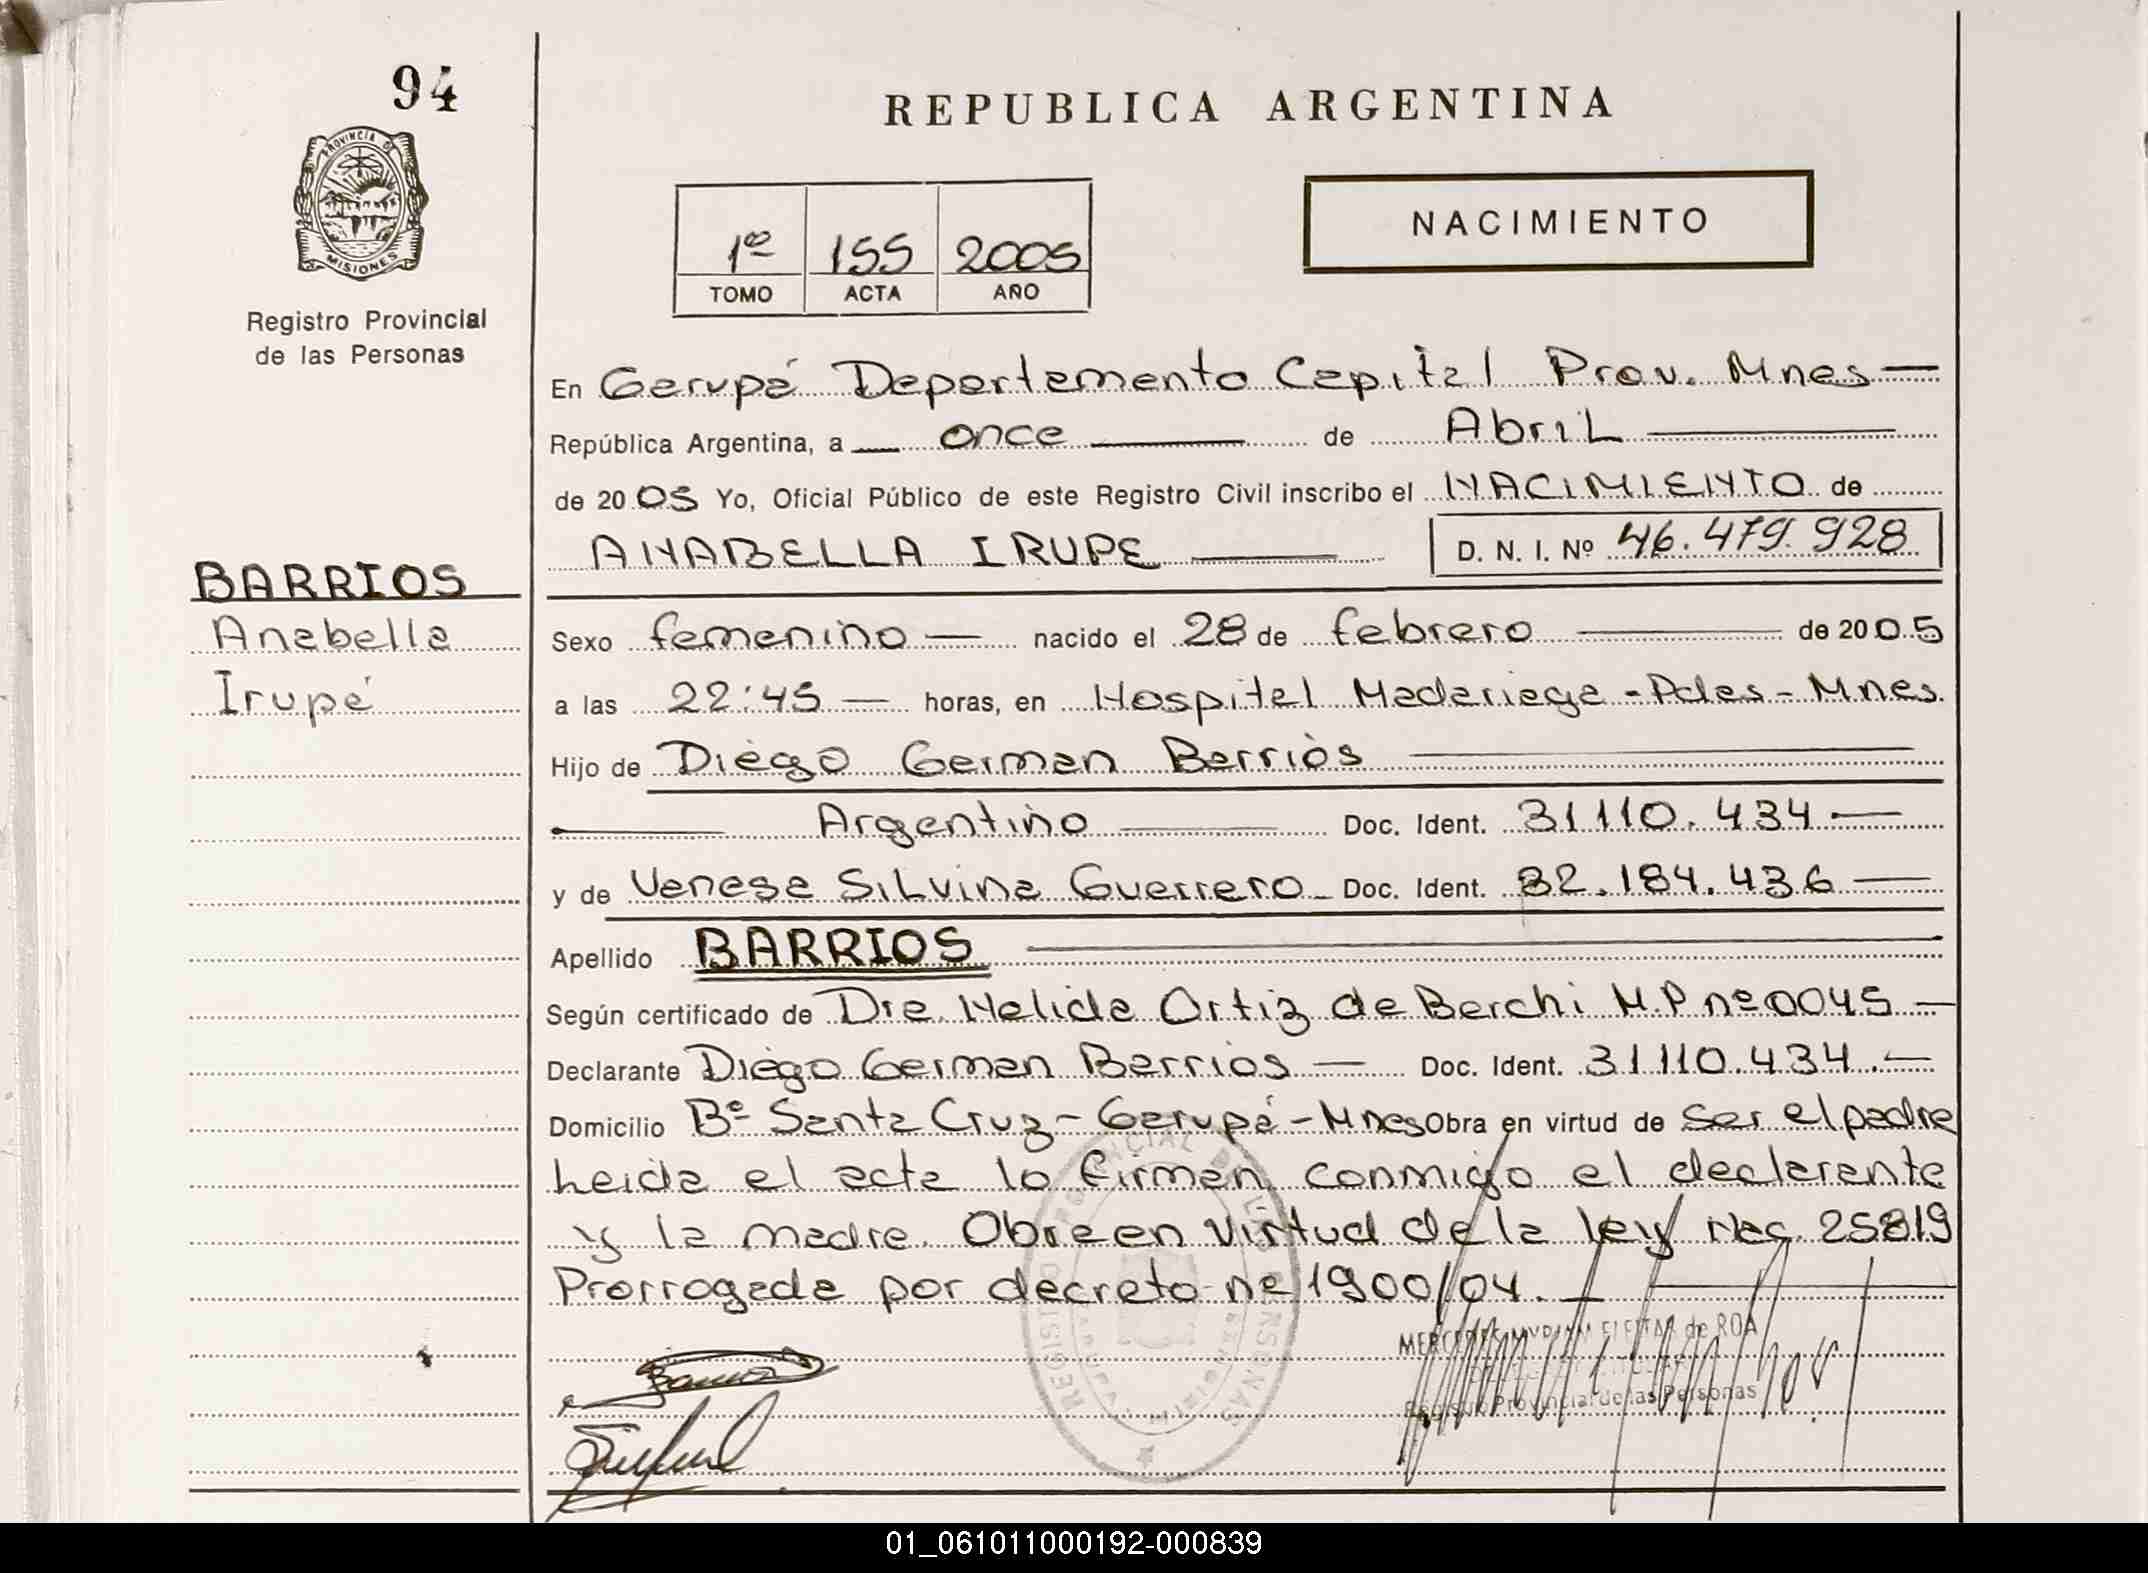 94
PROVINCIA DE
MISIONES
Registro Provincial
de las Personas
REPUBLICA ARGENTINA
1º 155 2005
TOMO ACTA AÑO
NACIMIENTO
En Garupá Departamento Capital Prov. Mnes
República Argentina, a once de Abril
de 2005 Yo, Oficial Público de este Registro Civil inscribo el NACIMIENTO de
ANABELLA IRUPE D. N. I. Nº 46.479.928
BARRIOS
Anabella
Irupé
Sexo femenino nacido el 28 de febrero de 2005
a las 22:45 horas, en Hospital Madariaga - Pdas - Mnes.
Hijo de Diego German Barrios
Argentino Doc. Ident. 31.110.434
y de Vanesa Silvina Guerrero Doc. Ident. 32.184.436
Apellido BARRIOS
Según certificado de Dra. Nelida Ortiz de Berchi M.P nº 0045
Declarante Diego German Barrios Doc. Ident. 31.110.434.
Domicilio Bº Santa Cruz - Garupá - Mnes Obra en virtud de ser el padre
Leida el acta lo firman conmigo el declarante
y la madre. Obra en virtud de la ley Nac. 25819
Prorrogada por decreto nº 1900/04.
MERCEDES MYRIAM de ROA
Registro Provincial de las Personas
Barrios
01_061011000192-000839